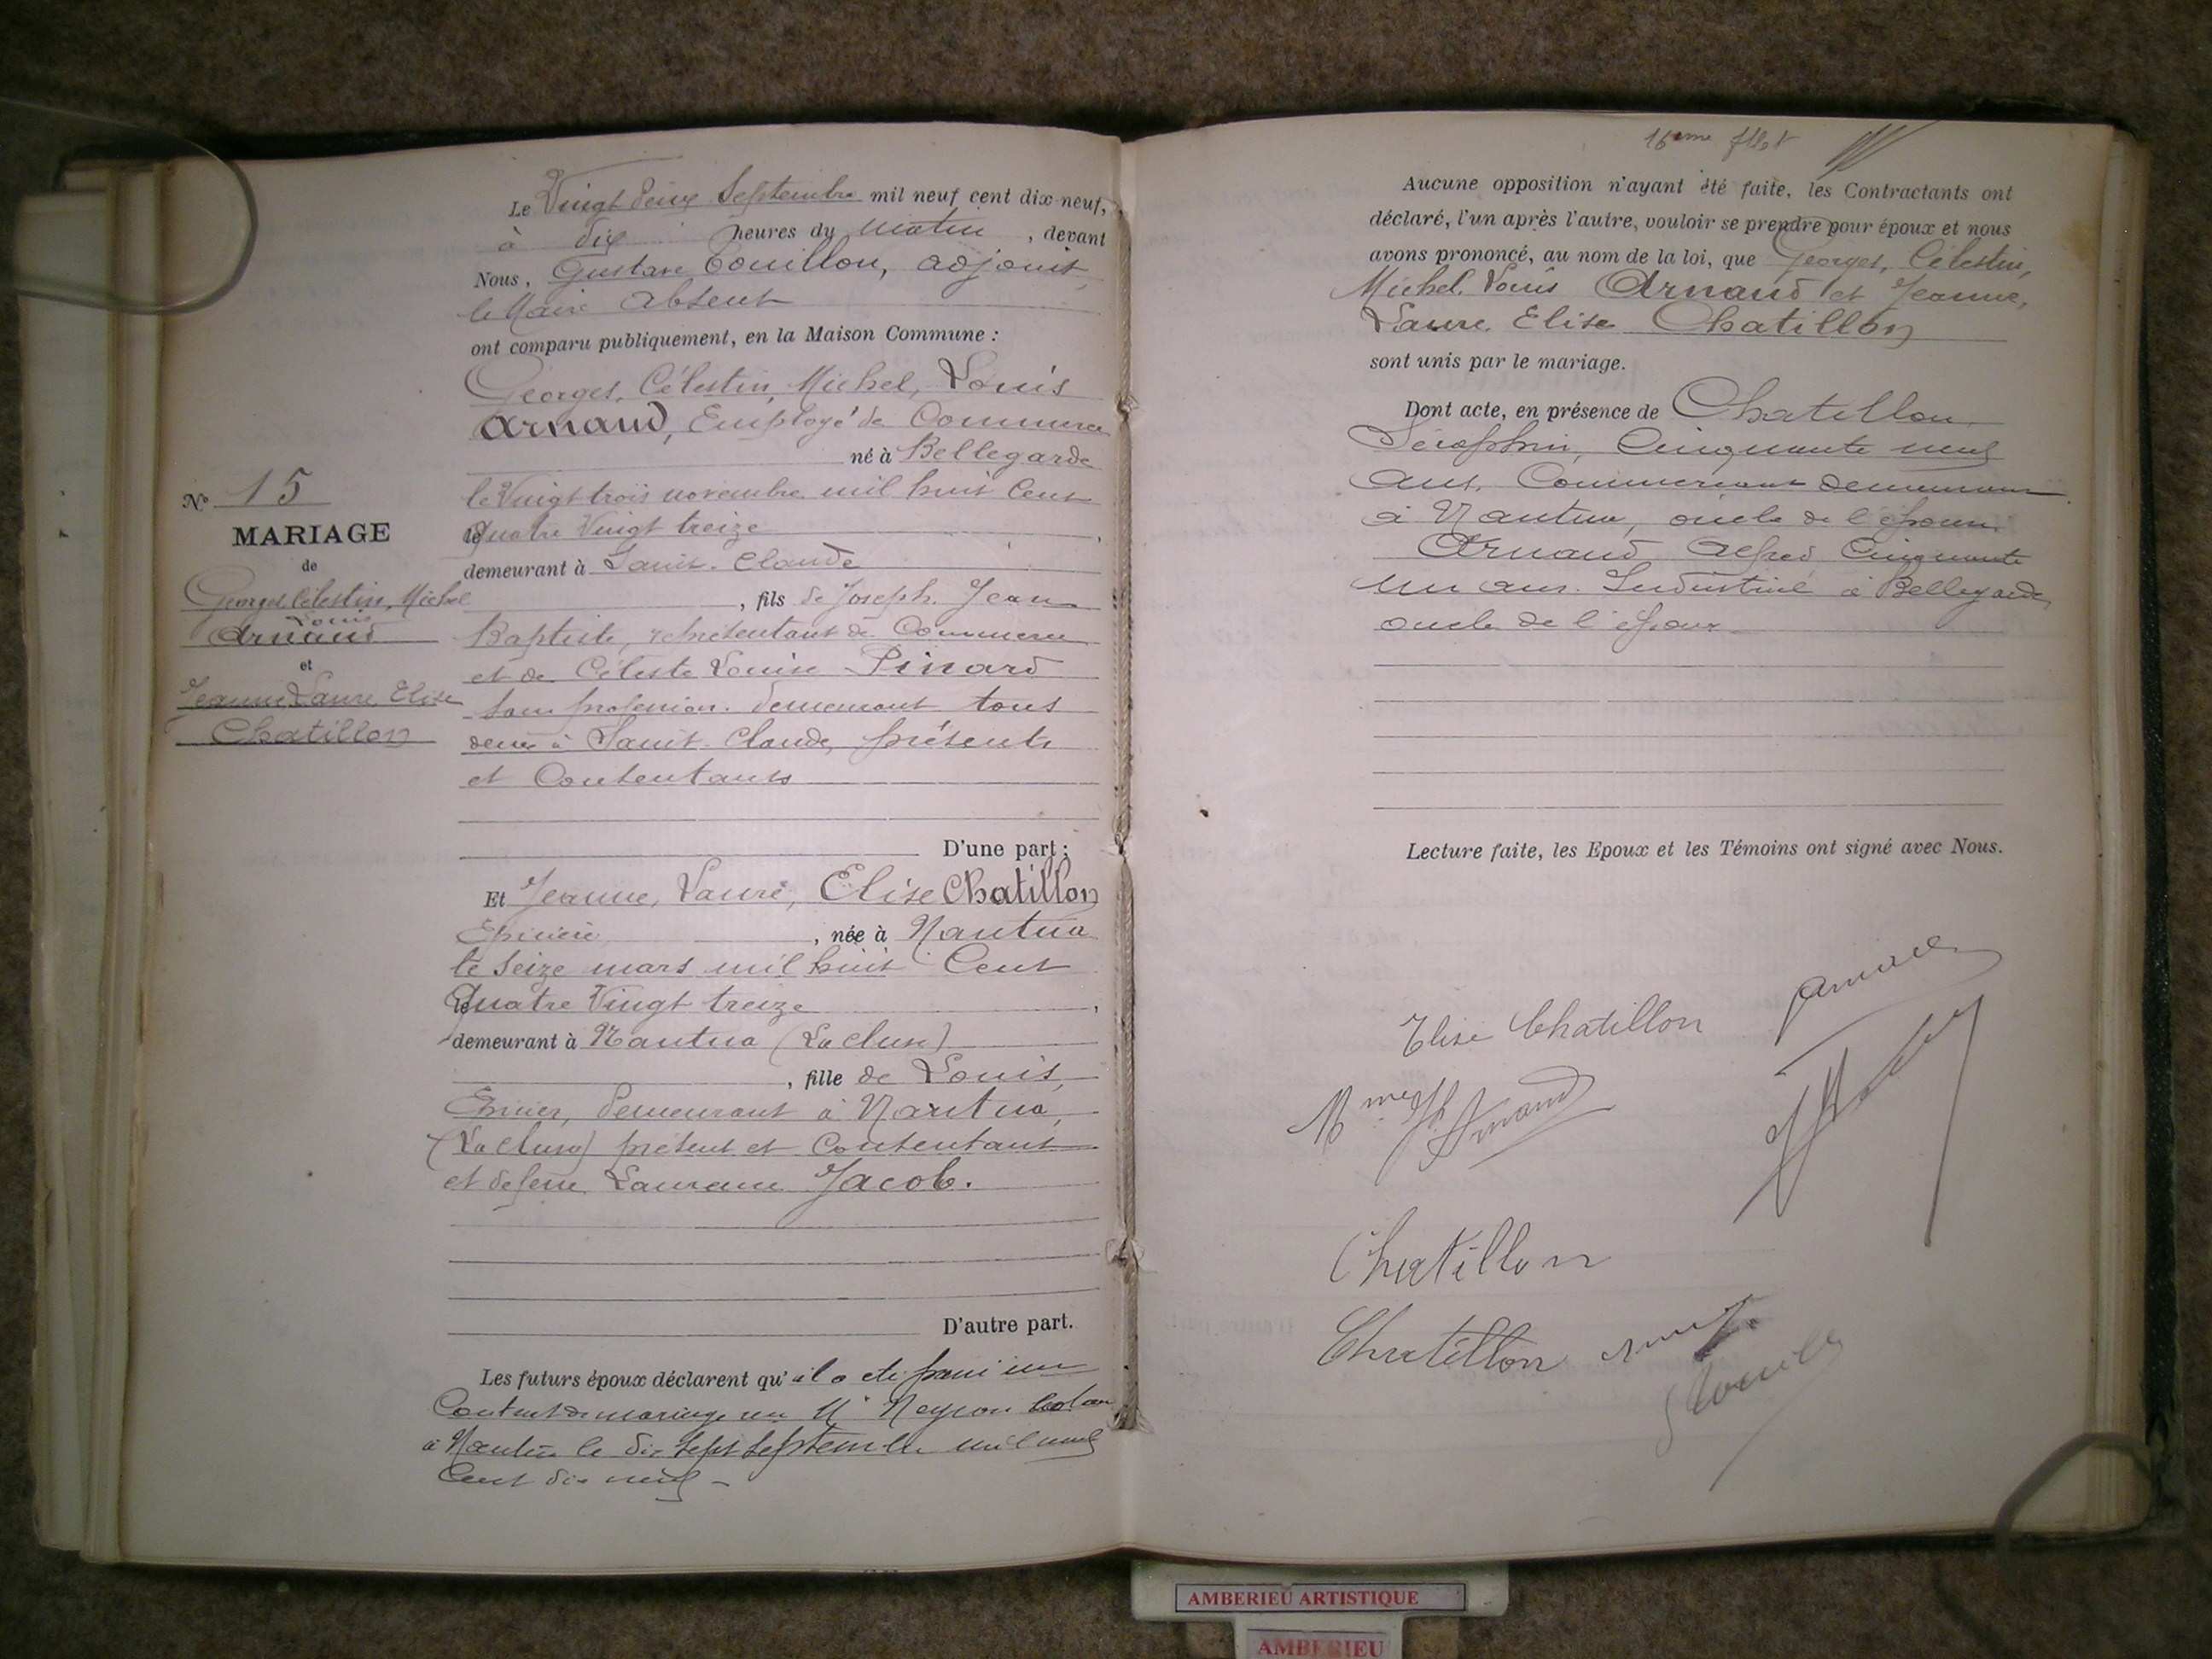 N° 15
MARIAGE
de
Georges Célestin, Michel
Louis
Arnaud
et
Jeanne Laure Elise
Chatillon
Le Vingt deux Septembre mil neuf cent dix-neuf,
à dix heures du matin, devant
Nous, Gustave Touillon, adjoint,
le Maire absent
ont comparu publiquement, en la Maison Commune :
Georges, Célestin, Michel, Louis
Arnaud, Employé de Commerce
né à Bellegarde
le Vingt trois novembre mil huit Cent
Quatre Vingt treize,
demeurant à Saint-Claude
, fils de Joseph, Jean
Baptiste, représentant de Commerce
et de Céleste Louise Pinard
sans profession. demeurant tous
deux à Saint-Claude, présents
et Consentants
D'une part ;
Et Jeanne, Laure, Elise Chatillon
Epicière, née à Nantua
le seize mars mil huit Cent
Quatre Vingt treize,
demeurant à Nantua (La Cluse)
, fille de Louis,
Epicier, demeurant à Nantua,
(La Cluse) présent et Consentant
et de feue Laurence Jacob.
D'autre part.
Les futurs époux déclarent qu'il a été passé un
Contrat de mariage M° Neyron
à Nantua le dix sept Septembre mil neuf
Cent dix neuf -
16ème
Aucune opposition n'ayant été faite, les Contractants ont
déclaré, l'un après l'autre, vouloir se prendre pour époux et nous
avons prononcé, au nom de la loi, que Georges, Célestin,
Michel, Louis Arnaud et Jeanne,
Laure, Elise Chatillon
sont unis par le mariage.
Dont acte, en présence de Chatillon
Séraphin, Cinquante neuf
ans, Commerçant demeurant
à Nantua, oncle de l'épouse.
Arnaud Alfred Cinquante
un ans. Industriel à Bellegarde
oncle de l'époux
Lecture faite, les Epoux et les Témoins ont signé avec Nous.
Elise Chatillon
Mme Arnaud
Chatillon
Chatillon
AMBERIEU ARTISTIQUE
AMBERIEU